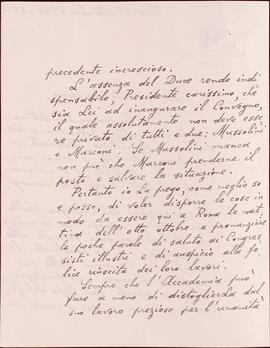 precedente increscioso.
L'assenza del Duce rende indi
spensabile, Presidente carissimo, che
sia Lei ad inaugurare il Convegno,
il quale assolutamente non deve esse
re privato di tutti e due: Mussolini
e Marconi. Se Mussolini manca
non può che Marconi prenderne il
posto e salvare la situazione.
Pertanto io La prego, come meglio so
e posso, di voler disporre le cose in
modo da essere qui a Roma la mat
tina dell'otto ottobre e pronunziare
le poche parole di saluto ai Congres
sisti illustri e di auspicio alla fe
lice riuscita dei loro lavori.
Sempre che l'Accademia può
fare a meno di distoglierla dal
suo lavoro prezioso per l'umanità